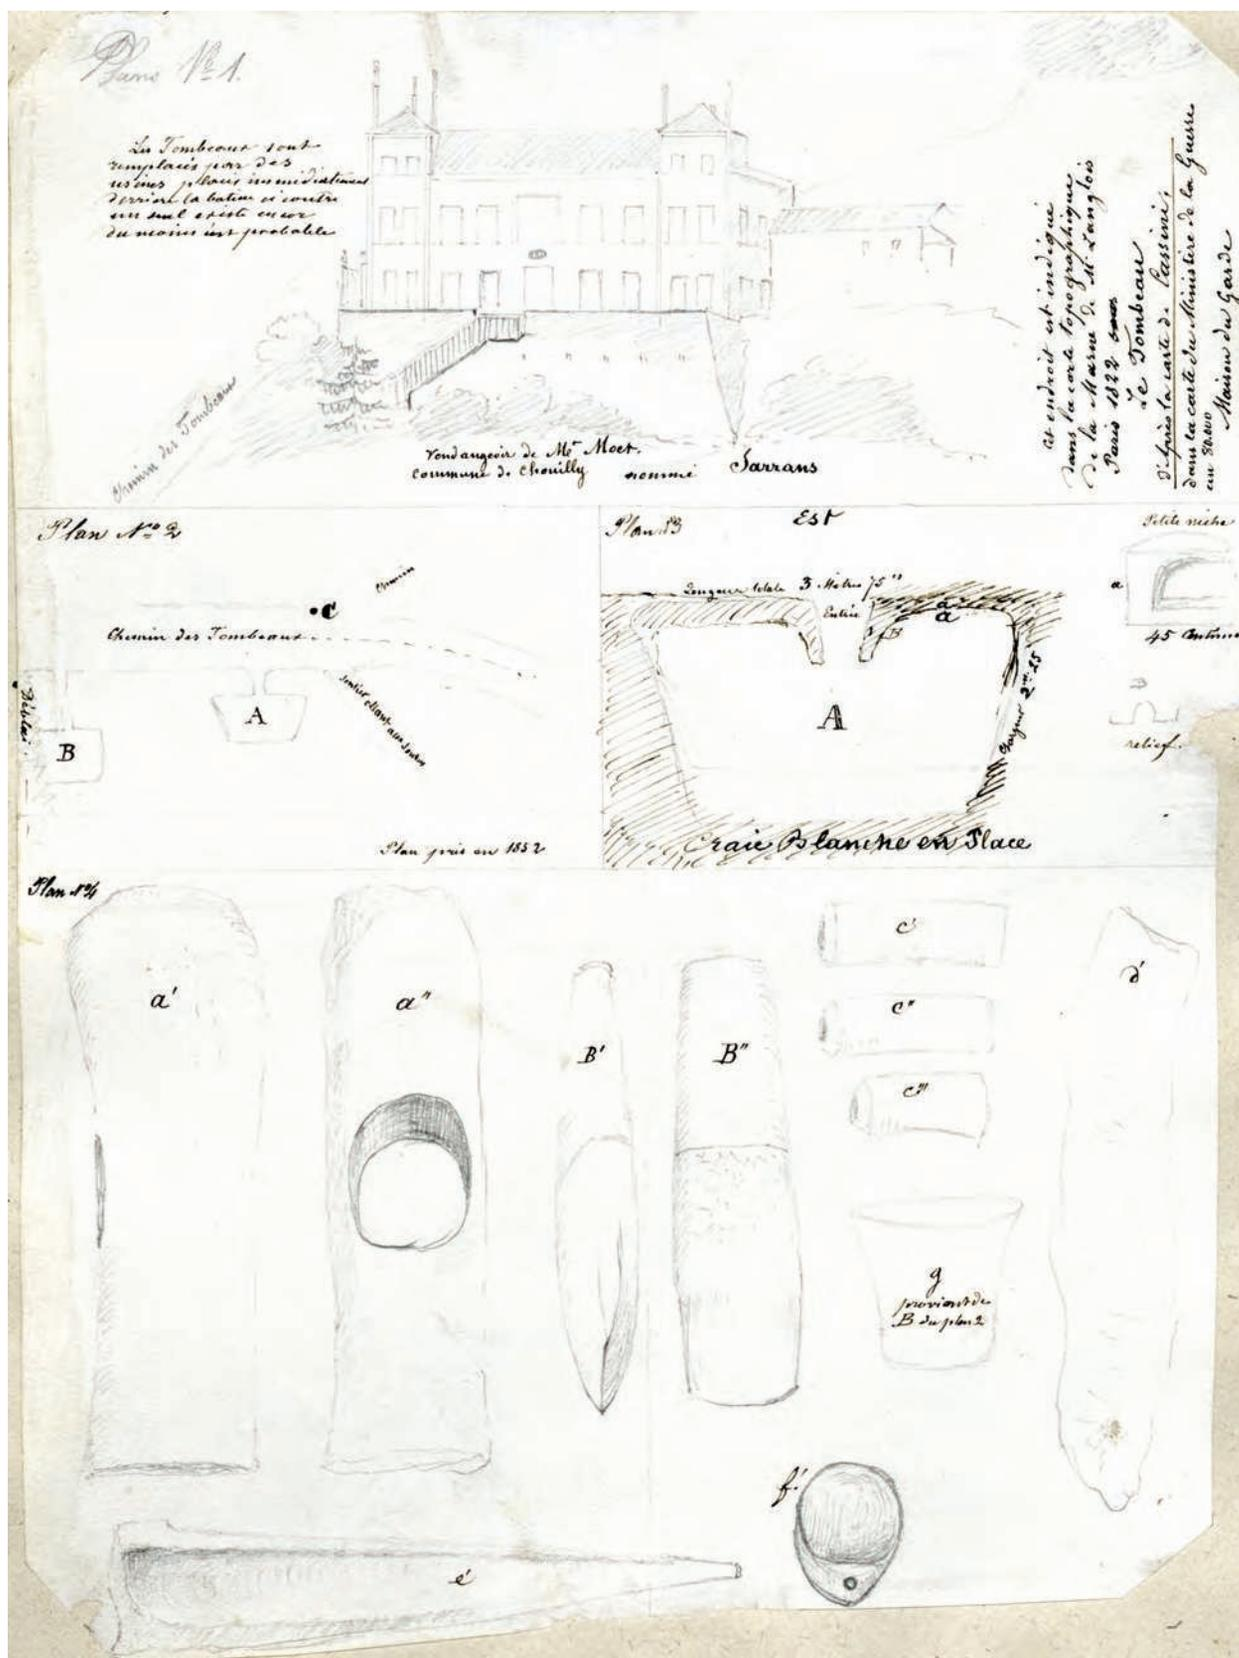 Plans No 1.
Les Tombeaux sont
remplacés par des
usines placés immédiatement
derriere la batisse ci contre
un seul existe encor
du moins est probable
Chemin des Tombeaux
Vendangeoir de Mr Moet.
Commune de Chouilly nommé Sarrans
cet endroit est indiqué
dans la carte topographique
de la Marne de M. Langlois
Paris 1822
Le Tombeau
d'Après la carte de Cassini;
dans la carte du Ministère de la Guerre
au 80.000
Maison du Garde
Plan No 2
Chemin
C
Chemin des Tombeaux
A
B
Plan pris en 1852
Plan 3
Est
Longueur totale 3 Metres 75"
Entrée
a
B
A
Largeur 2m 25
Craie Blanche en Place
Petite niche
a
45 Centim
relief.
Plan No 4
a'
a"
B'
B"
c'
c"
c'"
d'
g
provient de
B du plan 2
f'
e'